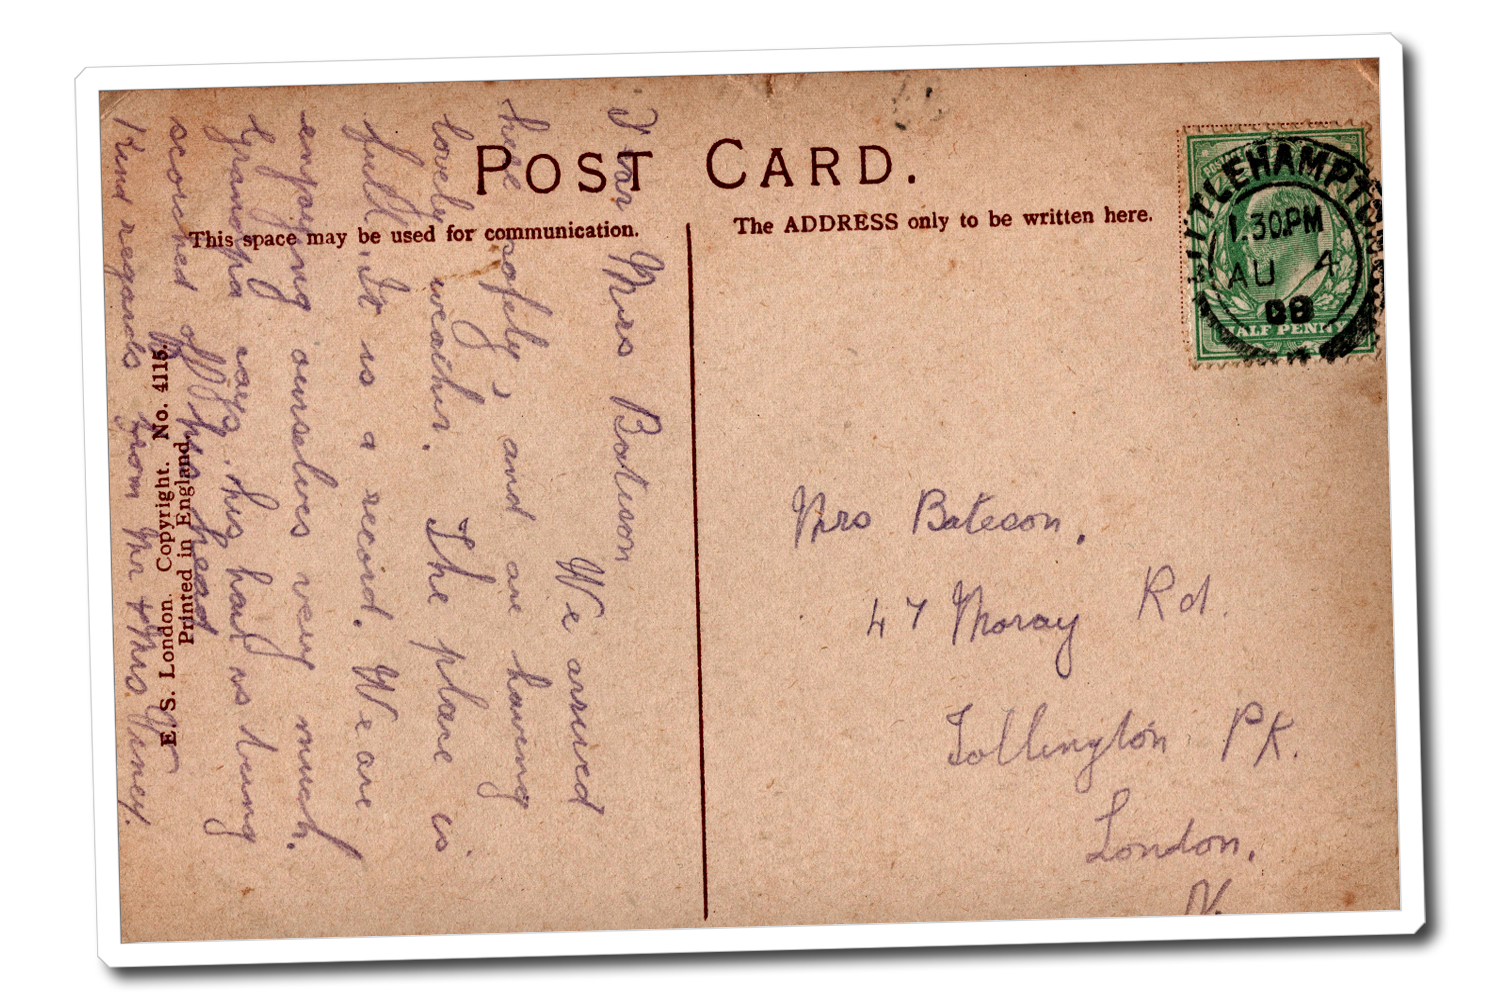 POST CARD.
This space may be used for communication.
The ADDRESS only to be written here.
LITTLEHAMPTON
1.30PM
AU 4
08
HALF PENNY
Dear Mrs Bateson
We arrived
here safely, and are having
lovely weather. The place is
full. It is a record. We are
enjoying ourselves very much.
Grandpa says, his hair is being
scorched off his head
Kind regards from Mr & Mrs Viney.
E. S. London. Copyright. No. 4115.
Printed in England.
Mrs Bateson,
47 Moray Rd.
Tollington Pk.
London.
N.